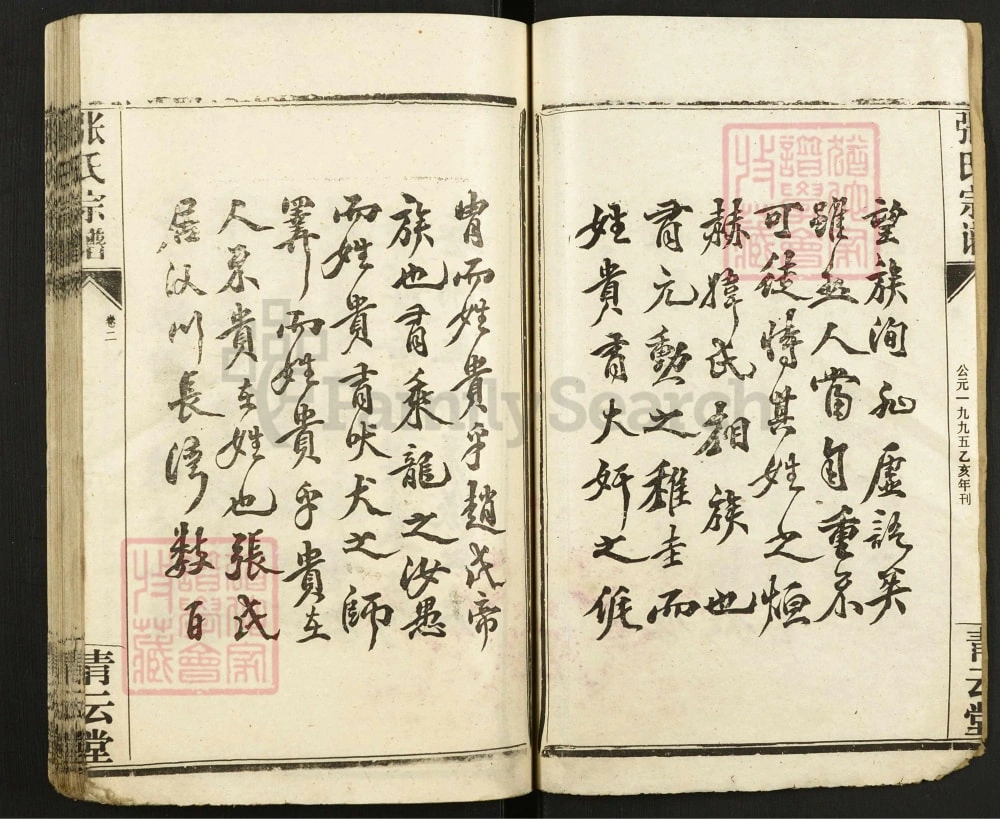 张氏宗谱
公元一九九五乙亥年刊
青云堂
望族洵非虛語矣
雖然人當自重不
可徒恃其姓之烜
赫緯氏顯族也
有元勳之稚圭而
姓貴有大奸之侂
胄而姓貴乎趙氏帝
族也有乘龍之汝愚
而姓貴有吠犬之師
睪而姓貴乎貴在
人果貴在姓也張氏
居汉川長灣數百
张氏宗谱
卷二
青云堂
FamilySearch